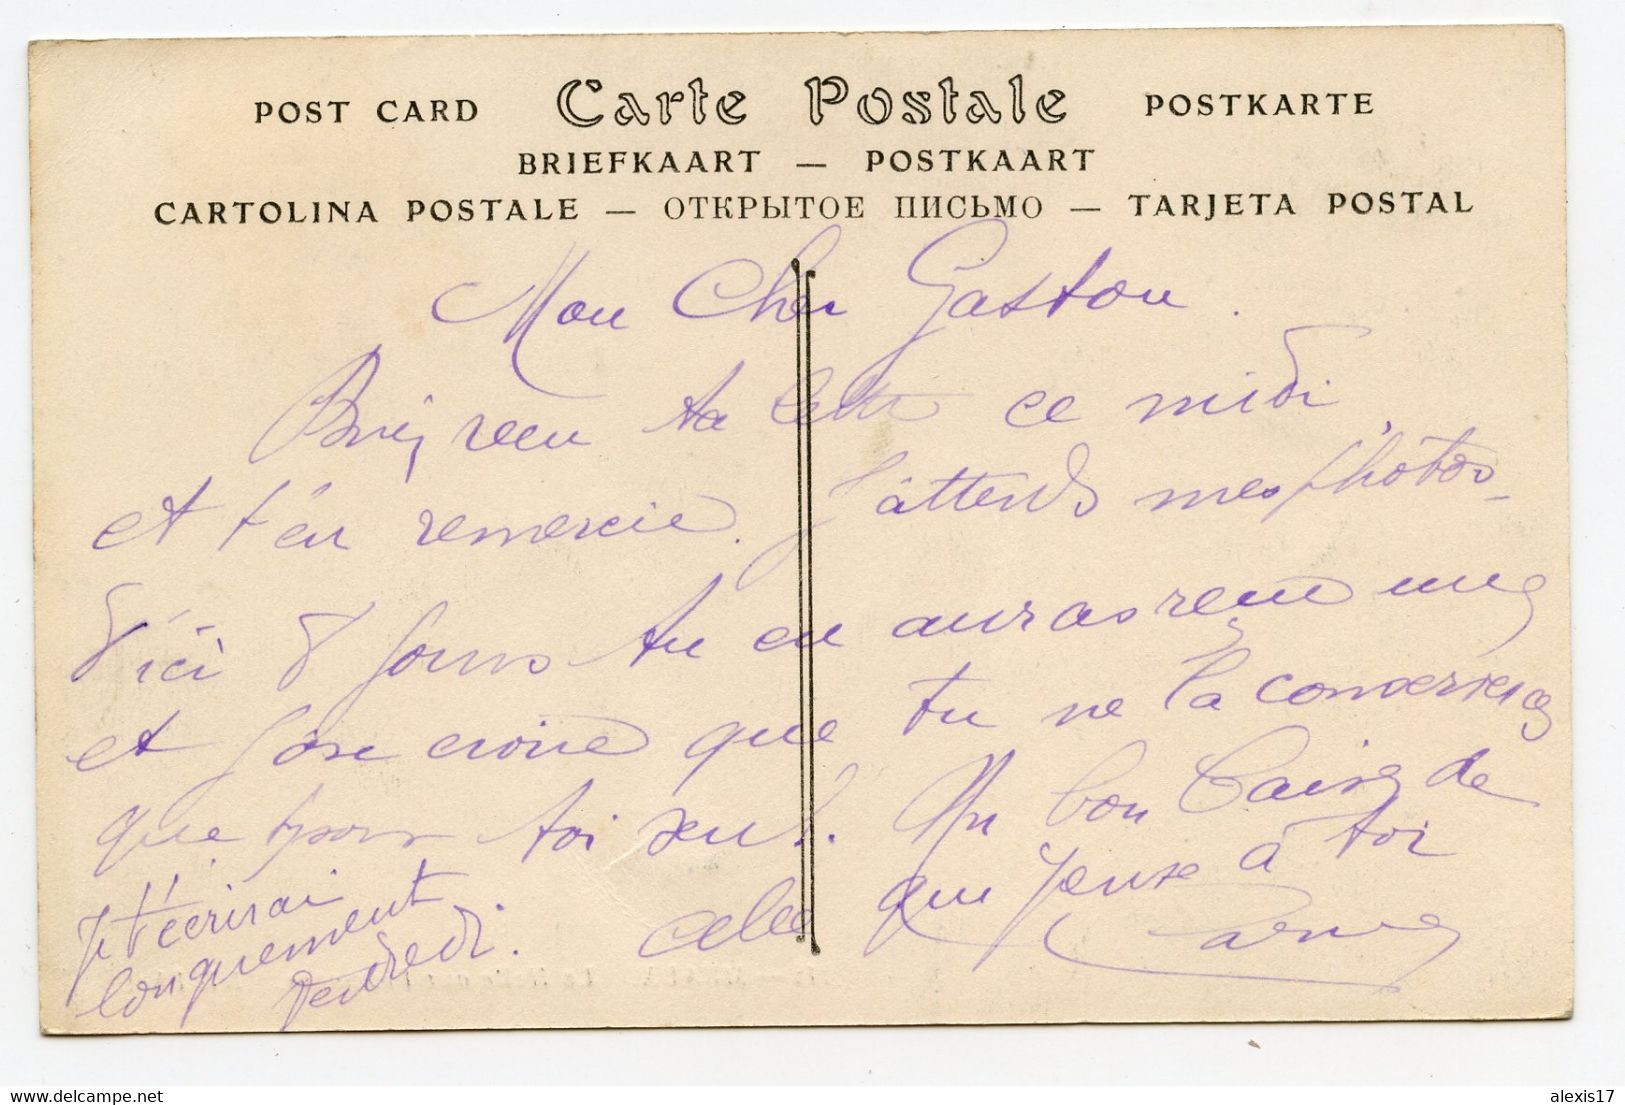 POST CARD Carte Postale POSTKARTE
BRIEFKAART — POSTKAART
CARTOLINA POSTALE — ОТКРЫТОЕ ПИСЬМО — TARJETA POSTAL
Mon Cher Gaston.
Bien reçu ta lettre ce midi
et t'en remercie. J'attends mes photos
d'ici 8 jours tu en auras reçu une
et j'ose croire que tu ne la conserveras
que pour toi seul. Un bon baiser de
celle qui pense à toi
je t'écrirai
longuement
vendredi.
delcampe.net
alexis17